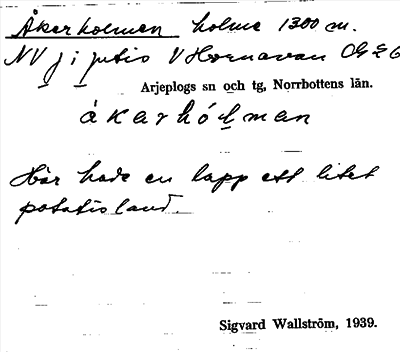 Åkerholmen holme 1300 m.
NV j i Jutis V Hornavan
Arjeplogs sn och tg, Norrbottens län.
åkarhólman
Här hade en lapp ett litet
potatisland.
Sigvard Wallström, 1939.